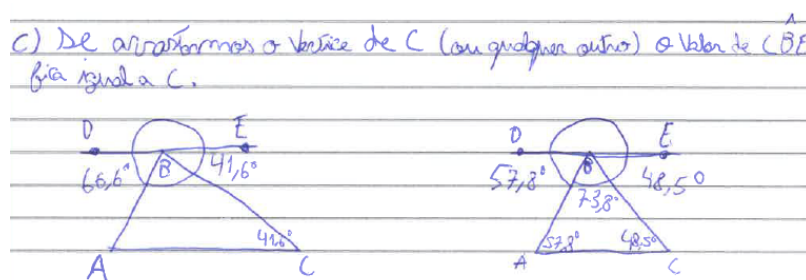 c) Se arrastarmos o vertice de C (ou qualquer outro) o valor de CB̂E
fica igual a C.
D E D E
66,6° B 41,6° 57,8° B 48,5°
73,8°
41,6° 57,8° 48,5°
A C A C